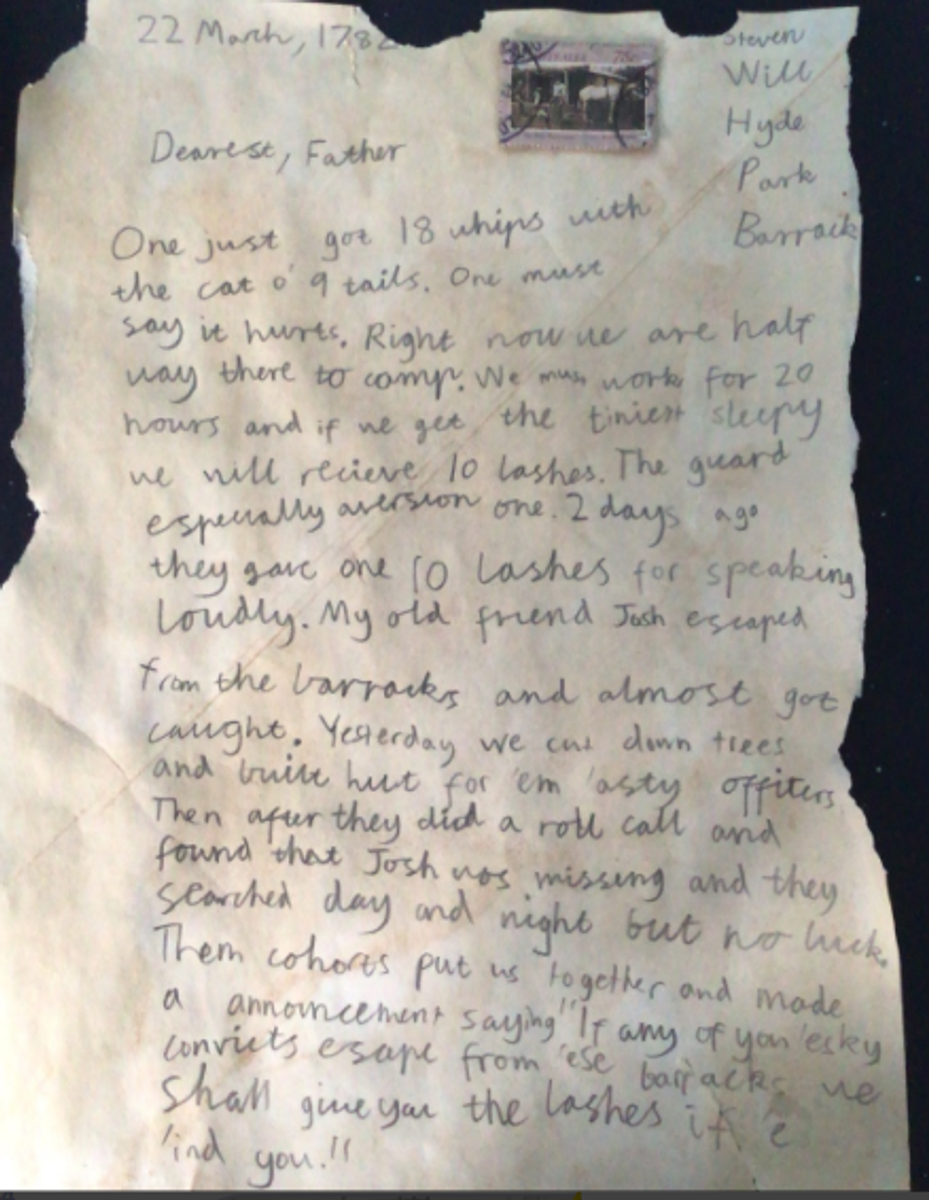 22 March, 178
Steven
Will
Hyde
Park
Barrack
Dearest, Father
One just got 18 whips with
the cat o' 9 tails. One must
say it hurts. Right now we are half
way there to camp. We must work for 20
hours and if we get the tiniest sleepy
we will recieve 10 lashes. The guard
especially aversion one. 2 days ago
they gave one 10 lashes for speaking
loudly. My old friend Josh escaped
from the barracks and almost got
caught. Yesterday we cut down trees
and built hut for 'em 'asty offiters
Then after they did a roll call and
found that Josh was missing and they
searched day and night but no luck.
Them cohorts put us together and made
a announcement saying "If any of you 'esky
convicts esape from 'ese barracks we
Shall give you the lashes if 'e
'ind you."